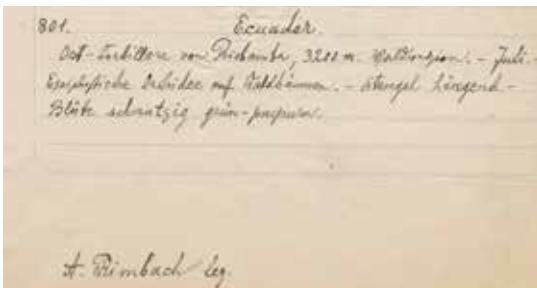 801. Ecuador.
Ost-Cordillere von Riobamba, 3200 m. Waldregion. - Juli. -
Epiphytische Orchidee auf Waldbäumen. - Stengel hängend -
Blüte schmutzig grün-purpurn.
A. Rimbach leg.